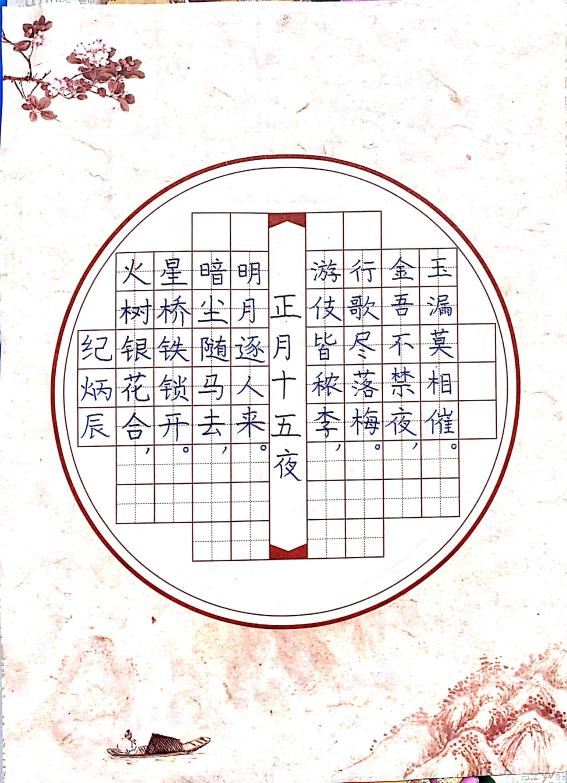 正月十五夜
火树银花合，
星桥铁锁开。
暗尘随马去，
明月逐人来。
游伎皆秾李，
行歌尽落梅。
金吾不禁夜，
玉漏莫相催。
纪炳辰